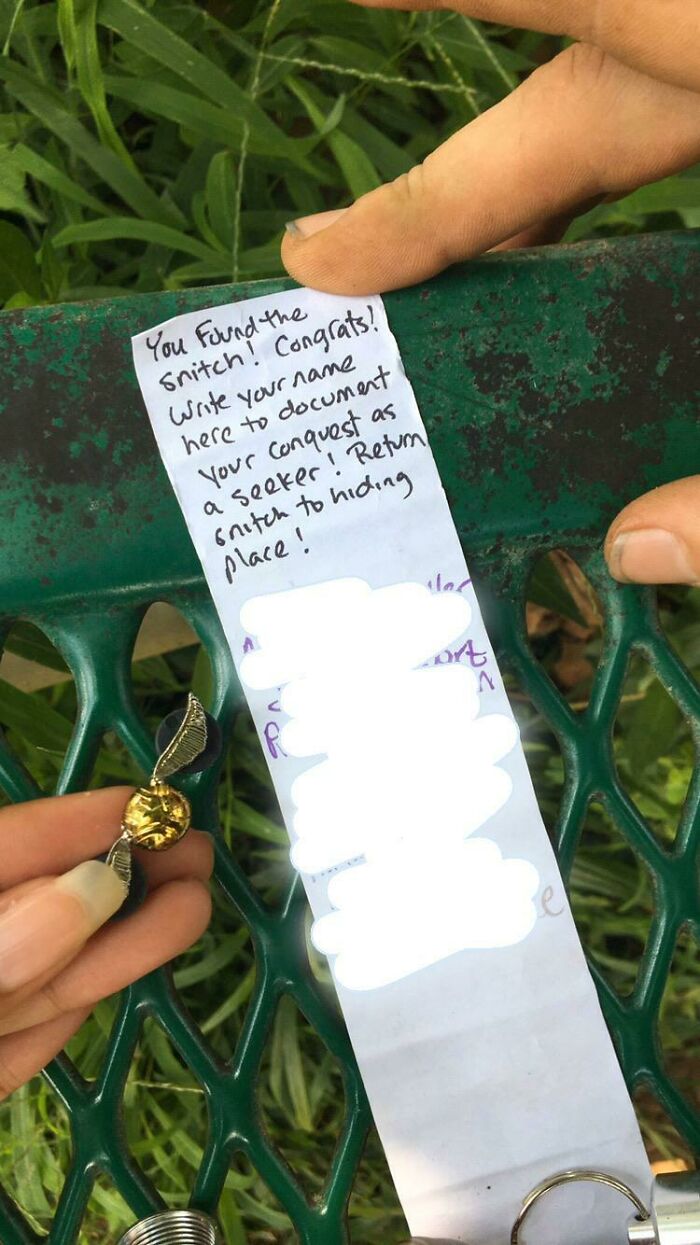 You Found the
snitch! Congrats!
Write your name
here to document
your conquest as
a seeker! Return
snitch to hiding
place!